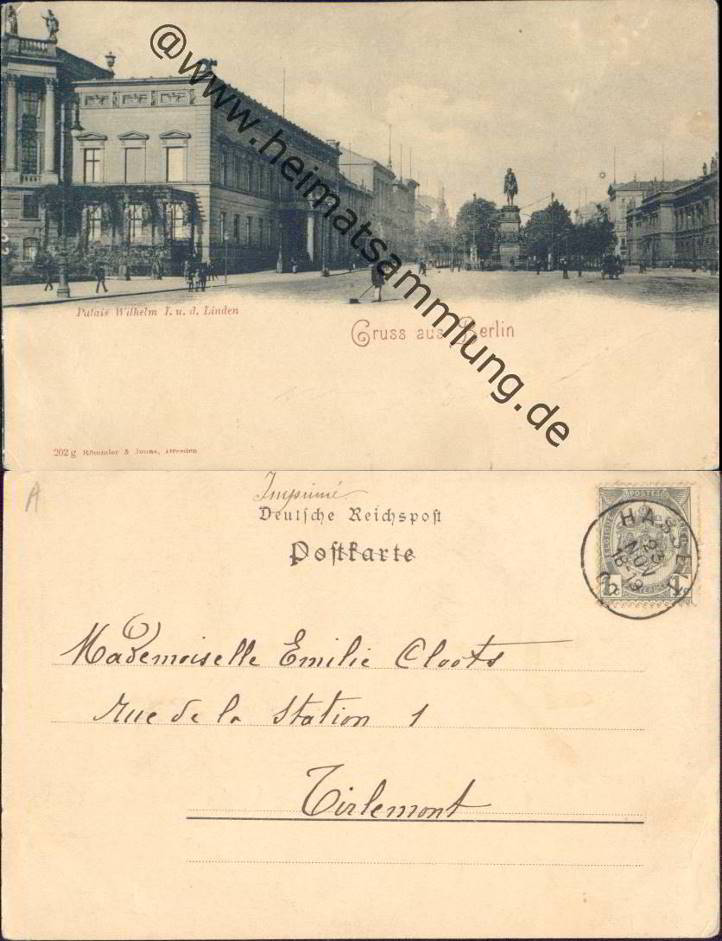 @www.heimatsammlung.de
Palais Wilhelm I. u. d. Linden
Gruss aus Berlin
202 g Römmler & Jonas, Dresden
Imprimé
Deutsche Reichspost
Postkarte
POSTES
HASSE
23
NOV
18-19
Mademoiselle Emilie Cloots
Rue de la Station 1
Tirlemont